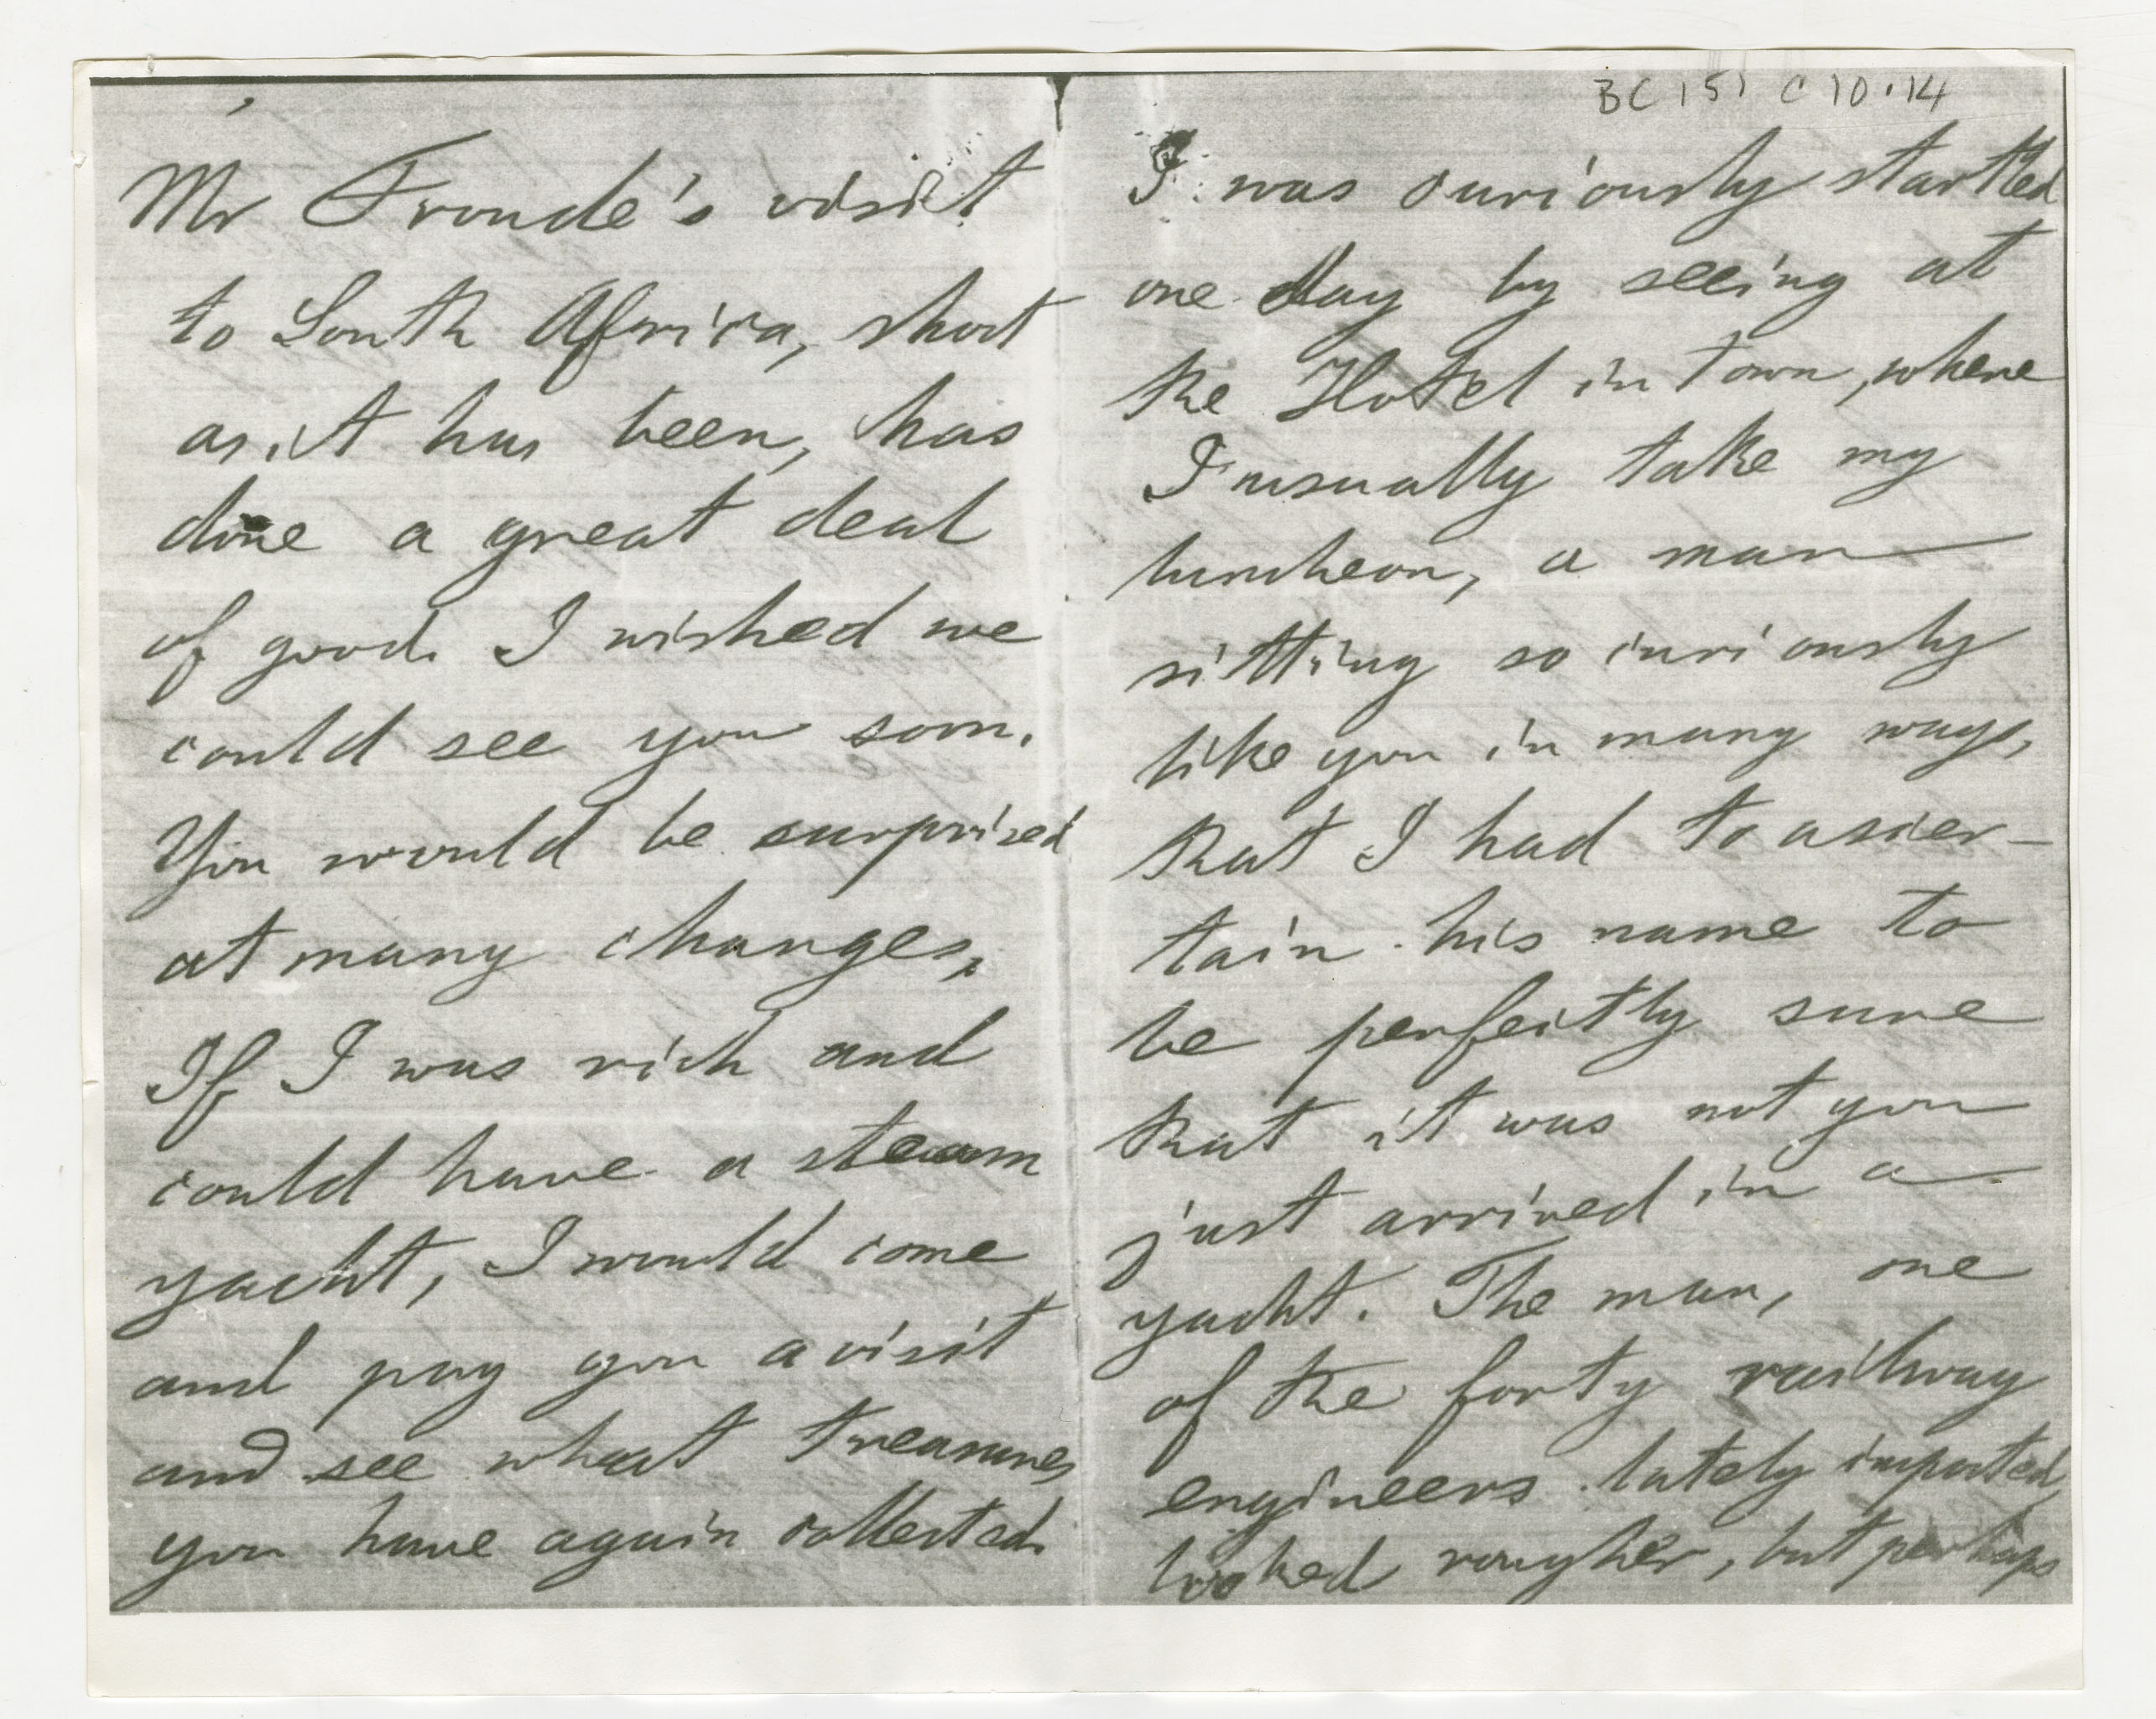 Mr Froude's visit
to South Africa, short
as it has been, has
done a great deal
of good. I wished we
could see you soon.
You would be surprised
at many changes.
If I was rich and
could have a steam
yacht, I would come
and pay you a visit
and see what treasures
you have again collected.
BC 151 C10.14
I was curiously startled
one day by seeing at
the Hotel in town, where
I usually take my
luncheon, a man
sitting so curiously
like you in many ways,
that I had to ascer-
tain his name to
be perfectly sure
that it was not you
just arrived in a
yacht. The man, one
of the forty railway
engineers lately imported,
looked rougher, but perhaps